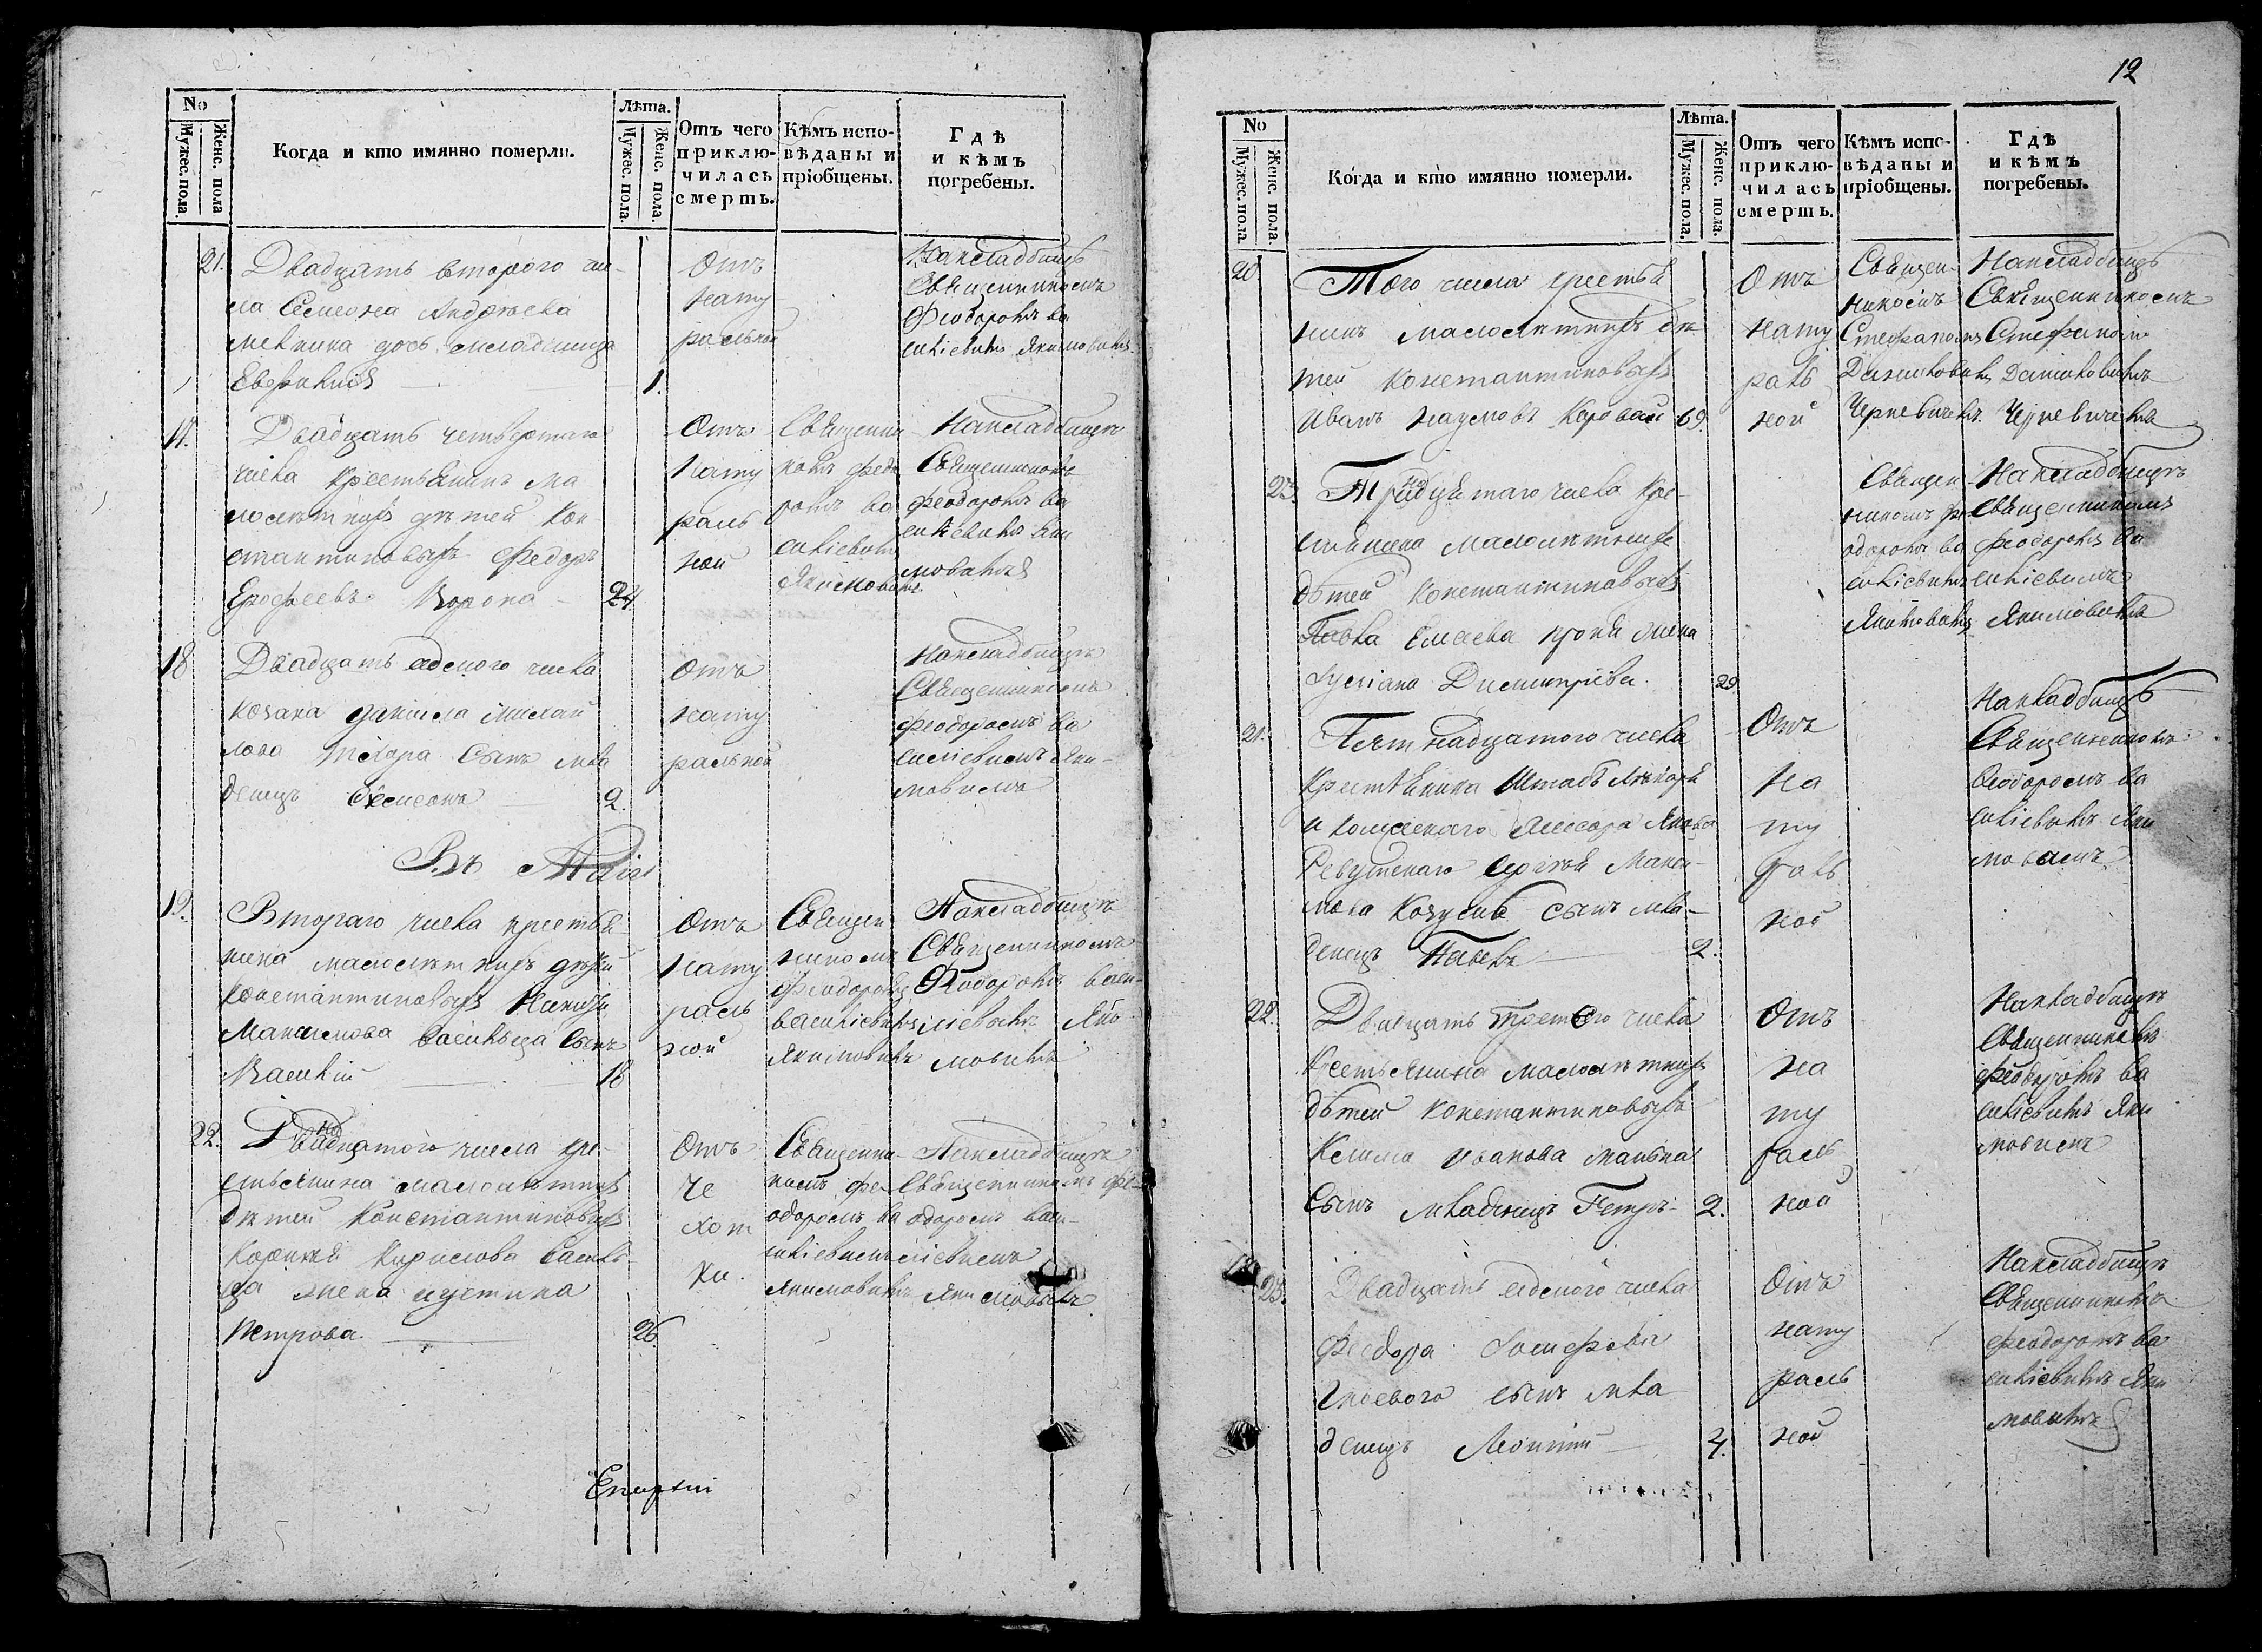 No
Мужес. пола
Женс. пола
Когда и кто имянно померли.
Лѣта.
Мужес. пола.
Женс. пола.
Отъ чего
приклю-
чилась
смерть.
Кѣмъ испо-
вѣданы и
пріобщены.
Гдѣ
и кѣмъ
погребены.
21.
Двадцать второго чи-
сла Семиона Андреева
дочь младеница
1.
Отъ
нату
ральной
Накладбищѣ
Священникомъ
Феодоромъ Ва
силіевимъ Якимовимъ
17.
Двадцать четвертаго
числа крестьянинъ ма
лолѣтнихъ дѣтей Кон
стантиновыхъ Федоръ
Ерофеевъ Ворона 24
Отъ
нату
раль
ной
Священни
комъ Федо
ромъ Ва
силіевимъ
Якимовимъ
Накладбищѣ
Священникомъ
Феодоромъ Ва
силіевимъ Яки
мовимъ
18
Двадцать седмого числа
козака Даниила Михай
лова сынъ мла
денецъ Семеонъ 2.
Отъ
нату
ральной
Накладбищѣ
Священникомъ
Феодоромъ Ва
силіевимъ Яки-
мовимъ
Въ Маіи
19.
Втораго числа крестья
нина малолѣтнихъ дѣтей
Константиновыхъ
Максимова Васильца сынъ
Василій 18
Отъ
нату
раль
ной
Священ
никомъ
Феодоромъ
Василіевимъ
Якимовимъ
Накладбищѣ
Священникомъ
Феодоромъ Васи-
ліевимъ Яки
мовимъ
22.
Двадцатого числа кре-
стьянина малолѣтнихъ
дѣтей Константиновыхъ
Корнѣя Кирилова Василь
ца жена Іустина
Петрова 26.
Отъ
че
хот
ки.
Священни-
комъ Фе-
одоромъ Ва
силіевимъ
Якимовимъ
Накладбищѣ
Священникомъ Фе-
одоромъ Васи-
ліевимъ
Якимовимъ
12
No
Мужес. пола
Женс. пола.
Когда и кто имянно померли.
Лѣта.
Мужес. пола.
Женс. пола.
Отъ чего
приклю-
чилась
смерть.
Кѣмъ испо-
вѣданы и
пріобщены.
Гдѣ
и кѣмъ
погребены.
20
Того числа крестья
нинъ малолѣтнихъ дѣ
тей Константиновыхъ
Иванъ Наумовъ Коровай 69.
Отъ
нату
раль
ной
Священ-
никомъ
Стефаномъ
Даниловимъ
Черневичемъ
Накладбищѣ
Священникомъ
Стефаномъ
Даниловимъ
Черневичемъ
23.
Тридцятаго числа кре-
стьянина малолѣтнихъ
дѣтей Константиновыхъ
Павла Елисеева жена
Димитріева. 29
Священ
никомъ Фе
одоромъ Ва
силіевимъ
Якимовимъ
Накладбищѣ
Священникомъ
Феодоромъ Ва
силіевимъ
Якимовимъ
21.
Пятнадцатого числа
крестьянина Штабъ Лѣкаря
и Асесора Якова
Ревуцкаго Сергѣя Макси-
мова сынъ мла-
денецъ Павелъ 2.
Отъ
на
ту
раль
ной
Накладбищѣ
Священникомъ
Феодоромъ Ва
силіевимъ Яки
мовимъ
22.
Двадцать третого числа
крестьянина малолѣтнихъ
дѣтей Константиновыхъ
Клима Иванова
сынъ младенецъ Петръ 2.
Отъ
на
ту
раль
ной
Накладбищѣ
Священникомъ
Феодоромъ Ва
силіевимъ Яки
мовимъ
23.
Двадцать седмого числа
Феодора Іосифова
сынъ мла
денецъ 4.
Отъ
нату
раль
ной
Накладбищѣ
Священникомъ
Феодоромъ Ва
силіевимъ Яки
мовимъ